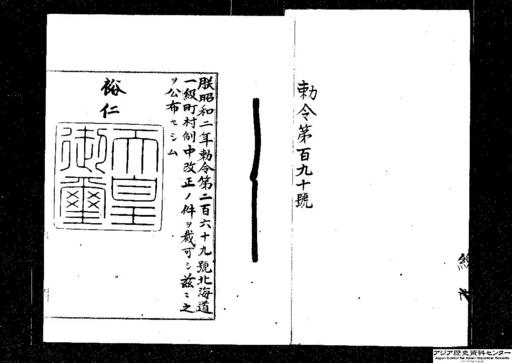 勅令第百九十號
朕昭和二年勅令第二百六十九號北海道
一級町村制中改正ノ件ヲ裁可シ茲ニ之
ヲ公布セシム
裕仁
天皇
御璽
アジア歴史資料センター
Japan Center for Asian Historical Records